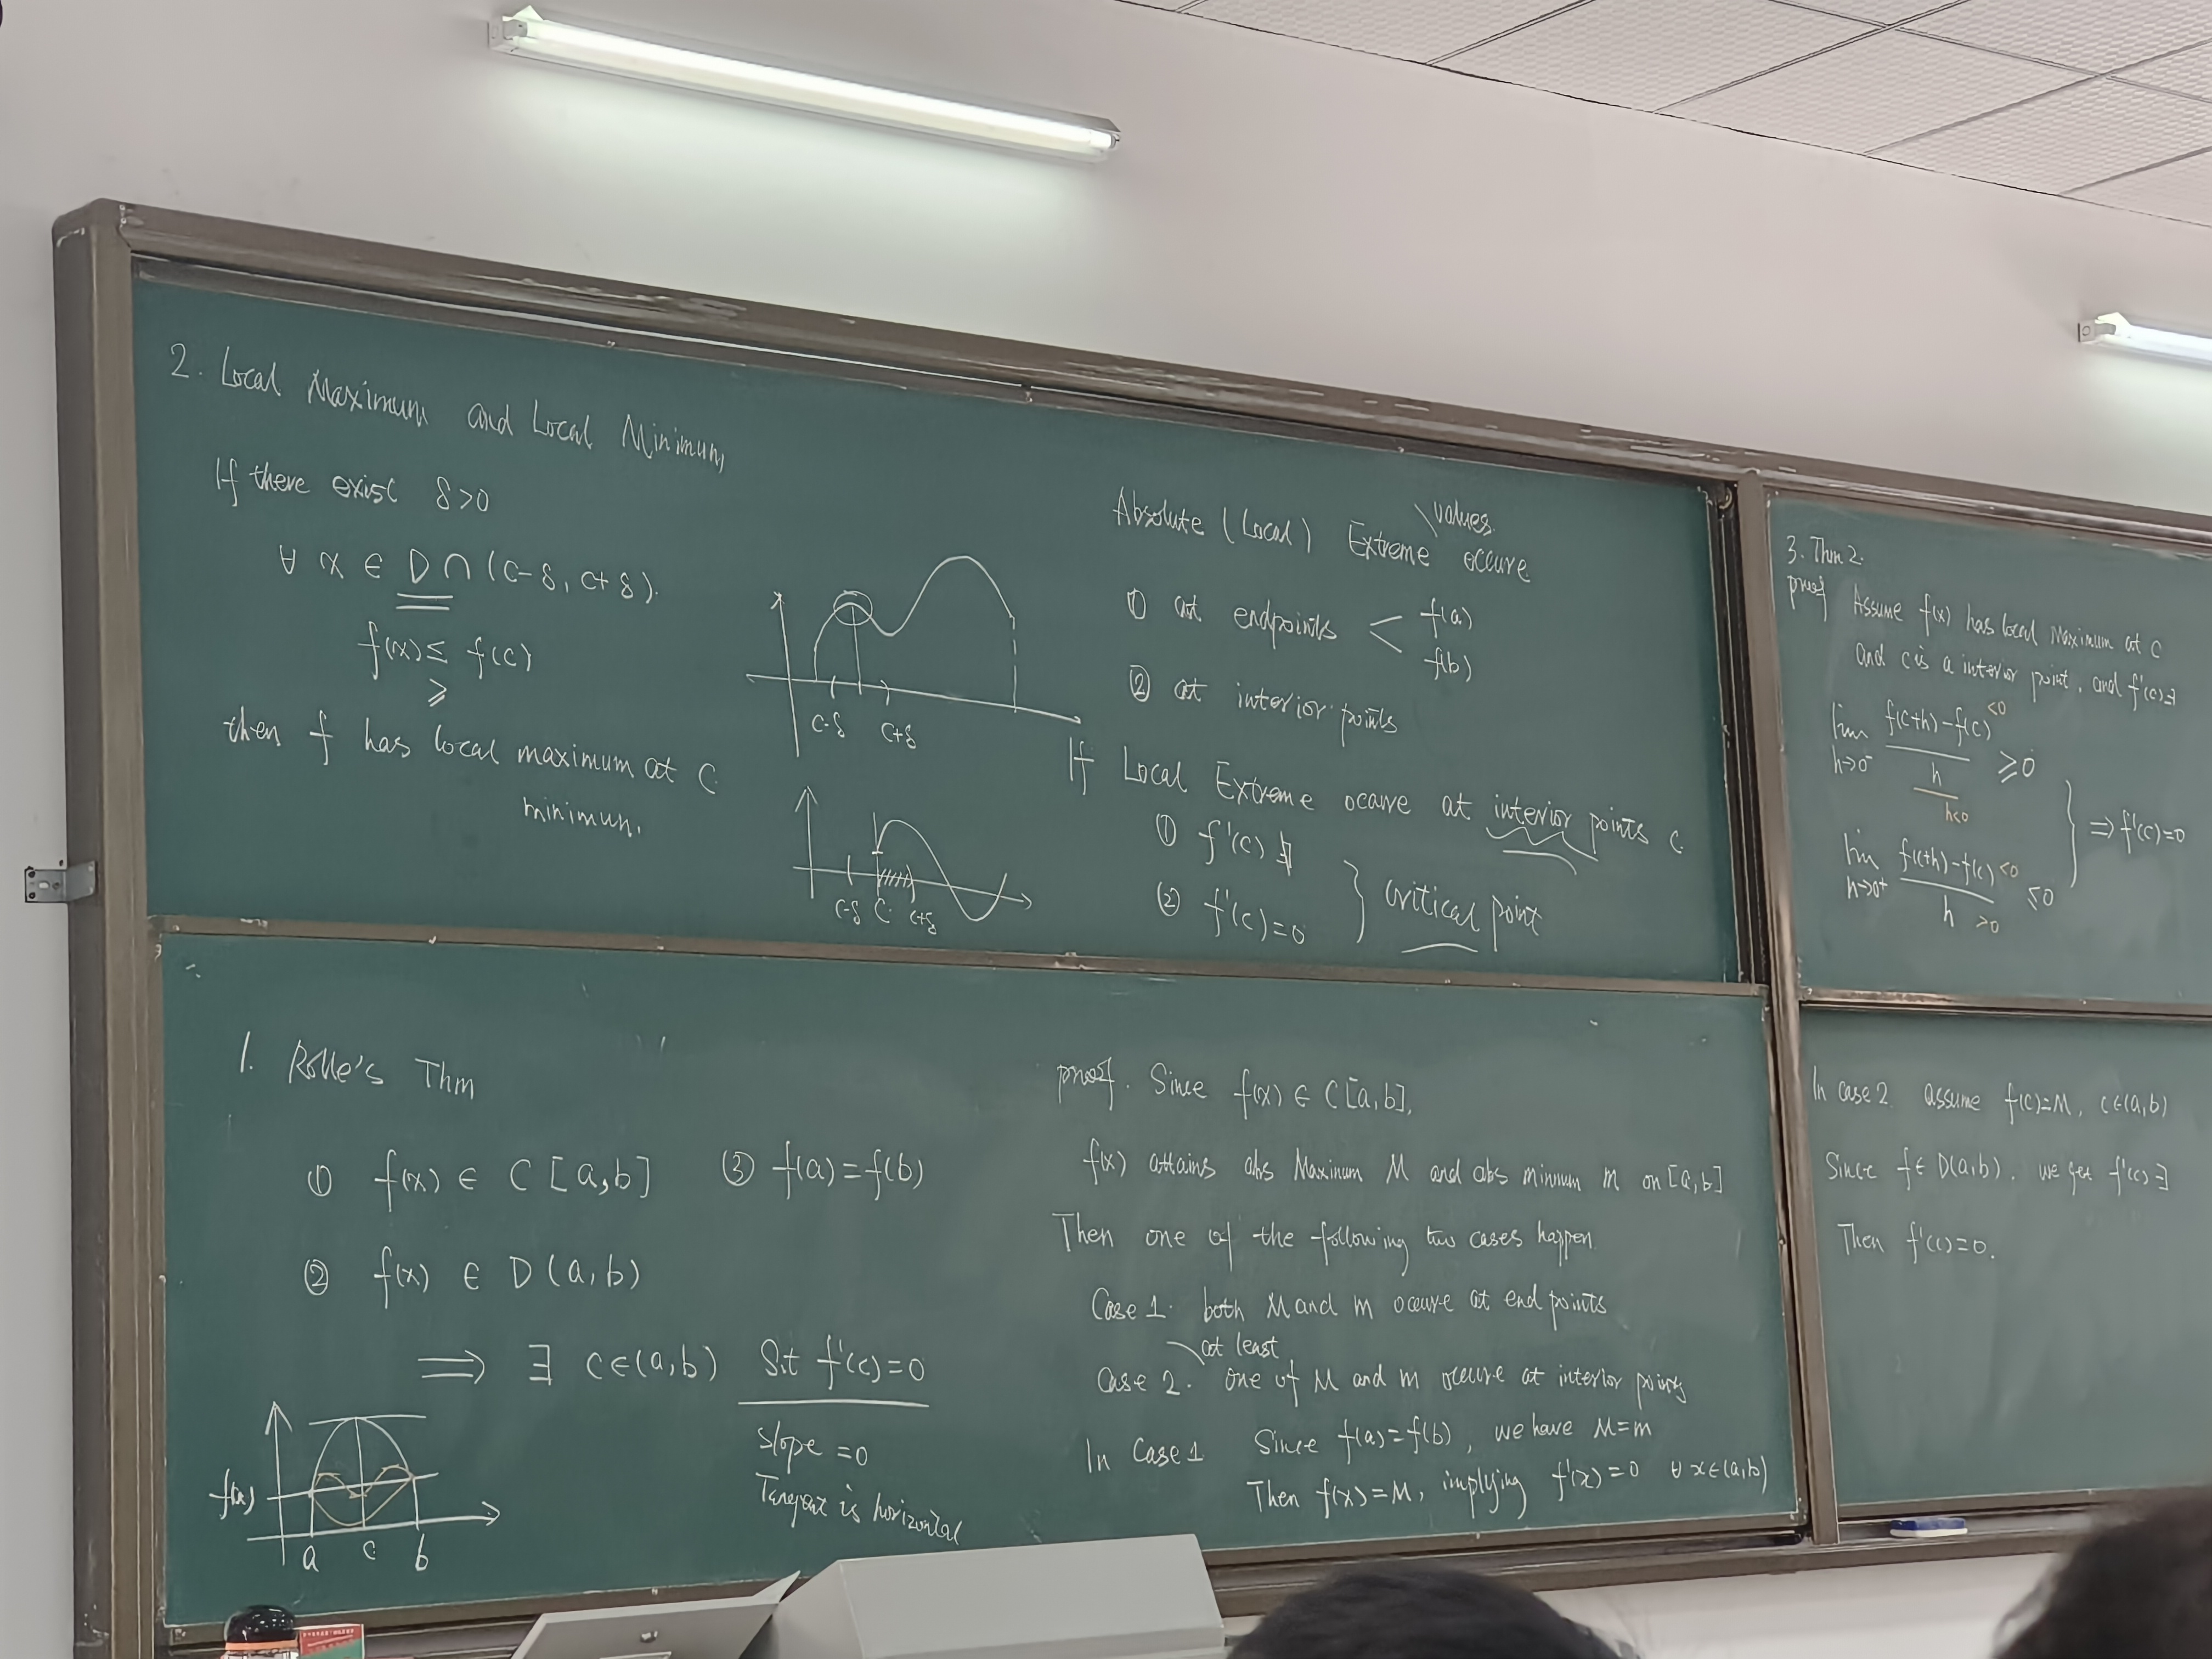 2. Local Maximum and Local Minimum
If there exist δ>0
∀ x ∈ D∩(c-δ, c+δ).
f(x) ≤ f(c)
≥
then f has local maximum at c
minimun.
c-δ c+δ
c-δ c c+δ
values
Absolute (Local) Extreme occure
① at endpoints < f(a)
f(b)
② at interior points
If Local Extreme ocawe at interior points c.
① f'(c) ∄
② f'(c)=0 } critical point
3. Thm 2.
proof Assume f(x) has local Maximum at c
and c is a interior point, and f'(c)∃
lim h→0⁻ f(c+h)-f(c) <0 / h h<0 ≥0
lim h→0⁺ f(c+h)-f(c) <0 / h >0 ≤0
} ⇒ f'(c)=0
1. Rolle's Thm
① f(x) ∈ C [a,b] ③ f(a)=f(b)
② f(x) ∈ D(a,b)
⟹ ∃ c∈(a,b) S.t f'(c)=0
slope =0
Tangent is horizontal
f(a)
a c b
proof. Since f(x) ∈ C[a,b],
f(x) attains abs Maximum M and abs minimum m on [a,b]
Then one of the following two cases happen
Case 1. both M and m ocaure at end points
at least
Case 2. one of M and m occure at interior points
In Case 1 Since f(a)=f(b), we have M=m
Then f(x)=M, implying f'(x)=0 ∀ x∈(a,b)
In case 2 assume f(c)=M, c∈(a,b)
Since f∈D(a,b), we get f'(c)∃
Then f'(c)=0.